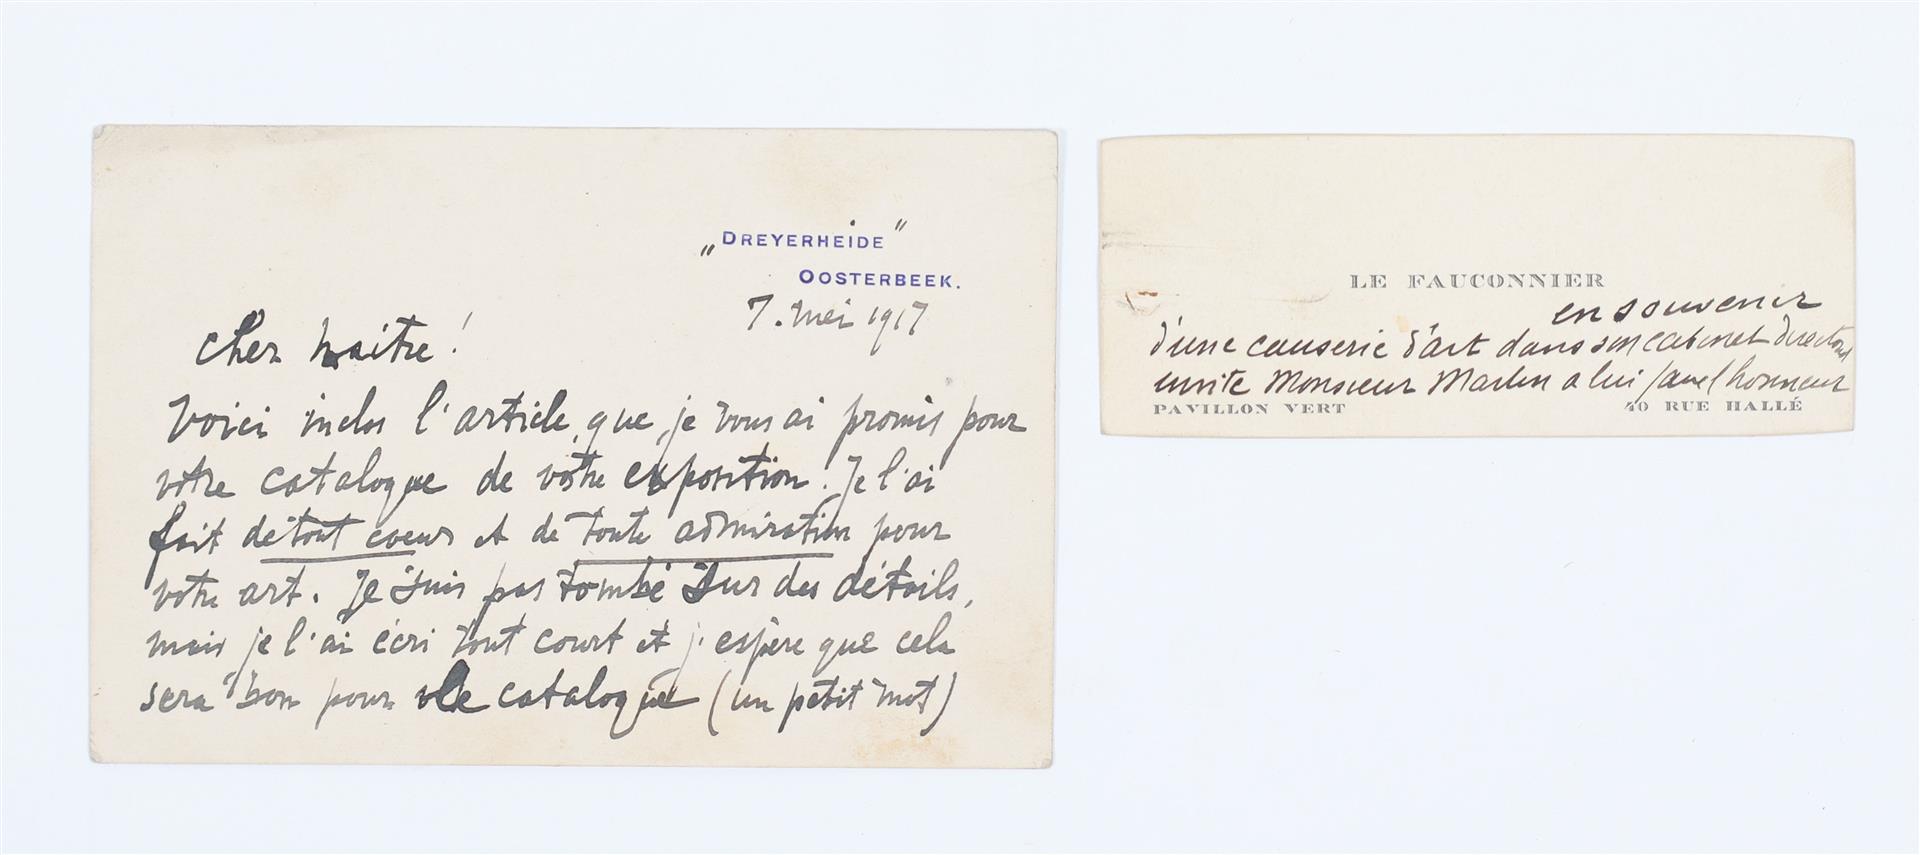 „DREYERHEIDE"
OOSTERBEEK.
7. mei 1917
Cher Maître!
Voici inclos l'article, que, je vous ai promis pour
votre catalogue de votre exposition. Je l'ai
fait de tout coeur et de toute admiration pour
votre art. Je suis pas tombé sur des détails,
mais je l'ai écri tout court et j'espère que cela
sera bon pour le catalogue (un petit mot)
LE FAUCONNIER
en souvenir
d'une causerie d'art dans son cabinet
invite Monsieur à lui
PAVILLON VERT 40 RUE HALLÉ